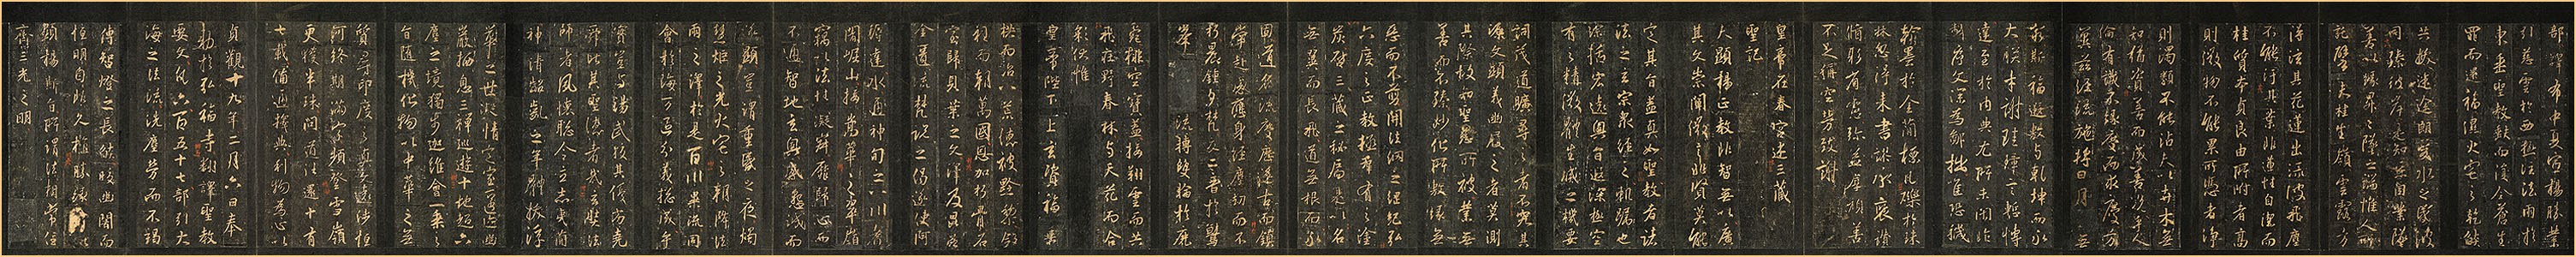 部譯布中夏宣揚勝業
引慈雲於西極注法雨於
東垂聖教缺而復全蒼生
罪而還福濕火宅之乾焰
共拔迷途朗愛水之昏波
同臻彼岸是知惡因業墜
善以緣昇昇墜之端惟人所
託譬夫桂生高嶺雲露方
得泫其花蓮出淥波飛塵
不能汙其葉非蓮性自潔而
桂質本貞良由所附者高
則微物不能累所憑者淨
則濁類不能沾夫以卉木無
知猶資善而成善況乎人
倫有識不緣慶而求慶方
冀茲經流施將日月而無
窮斯福遐敷與乾坤而永
大朕才謝珪璋言慚博
達至於內典尤所未閑昨
製序文深為鄙拙唯恐穢
翰墨於金簡標瓦礫於珠
林忽得來書謬承褒讚
循躬省慮彌益厚顏善
不足稱空勞致謝
皇帝在春宮述三藏
聖記
夫顯揚正教非智無以廣
其文崇闡微言非賢莫能
定其旨蓋真如聖教者諸
法之玄宗眾經之軌躅也
綜括宏遠奧旨遐深極空
有之精微體生滅之機要
詞茂道曠尋之者不究其
源文顯義幽履之者莫測
其際故知聖慈所被業無
善而不臻妙化所敷緣無
惡而不翦開法網之綱紀弘
六度之正教拯群有之塗
炭啟三藏之秘扃是以名
無翼而長飛道無根而永
固道名流慶歷遂古而鎮
常赴感應身經塵劫而不
朽晨鐘夕梵交二音於鷲
峯流轉雙輪於鹿
菀排空寶蓋接翔雲而共
飛莊野春林與天花而合
彩伏惟
皇帝陛下上玄資福垂
拱而治八荒德被黔黎斂
衽而朝萬國恩加朽骨石
室歸貝葉之文澤及昆蟲
金匱流梵說之偈遂使阿
耨達水通神甸之八川耆
闍崛山接嵩華之翠嶺
竊以法性凝寂靡歸心而
不通智地玄奧感懇誠而
遂顯豈謂重昏之夜燭
慧炬之光火宅之朝降法
雨之澤於是百川異流同
會於海萬區分義總成乎
實豈與湯武校其優劣堯
舜比其聖德者哉玄奘法
師者夙懷聰令立志夷簡
神清齠齔之年體拔浮
華之世凝情定室匿跡幽
巖栖息三禪巡遊十地超六
塵之境獨步迦維會一乘之
旨隨機化物以中華之無
質尋印度之真文遠涉恒
河終期滿字頻登雪嶺
更獲半珠問道往還十有
七載備通釋典利物為心以
貞觀十九年二月六日奉
敕於弘福寺翻譯聖教
要文凡六百五十七部引大
海之法流洗塵勞而不竭
傳智燈之長焰皎幽闇而
恒明自非久植勝緣何以
顯揚斯旨所謂法相常住
齊三光之明